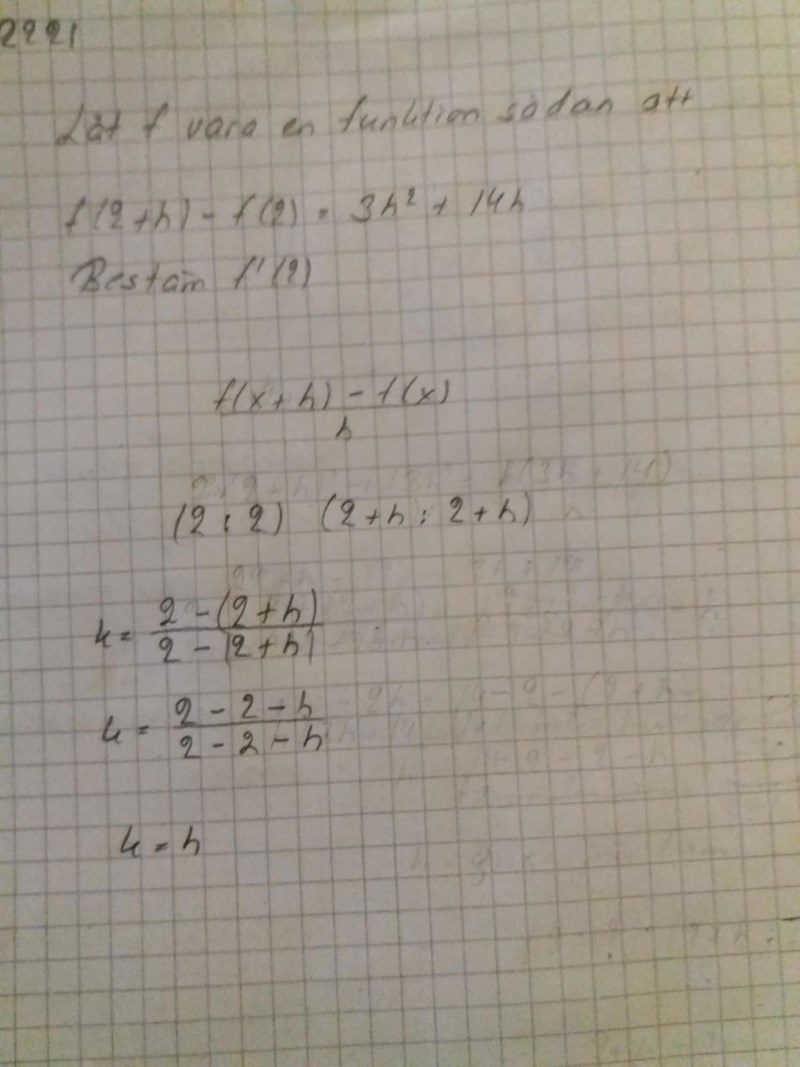 2221
Låt f vara en funktion sådan att
f(2+h) - f(2) = 3h² + 14h
Bestäm f'(2)
f(x+h) - f(x)
h
(2;2) (2+h; 2+h)
k = 2 - (2+h)
2 - (2+h)
k = 2 - 2 - h
2 - 2 - h
k = h